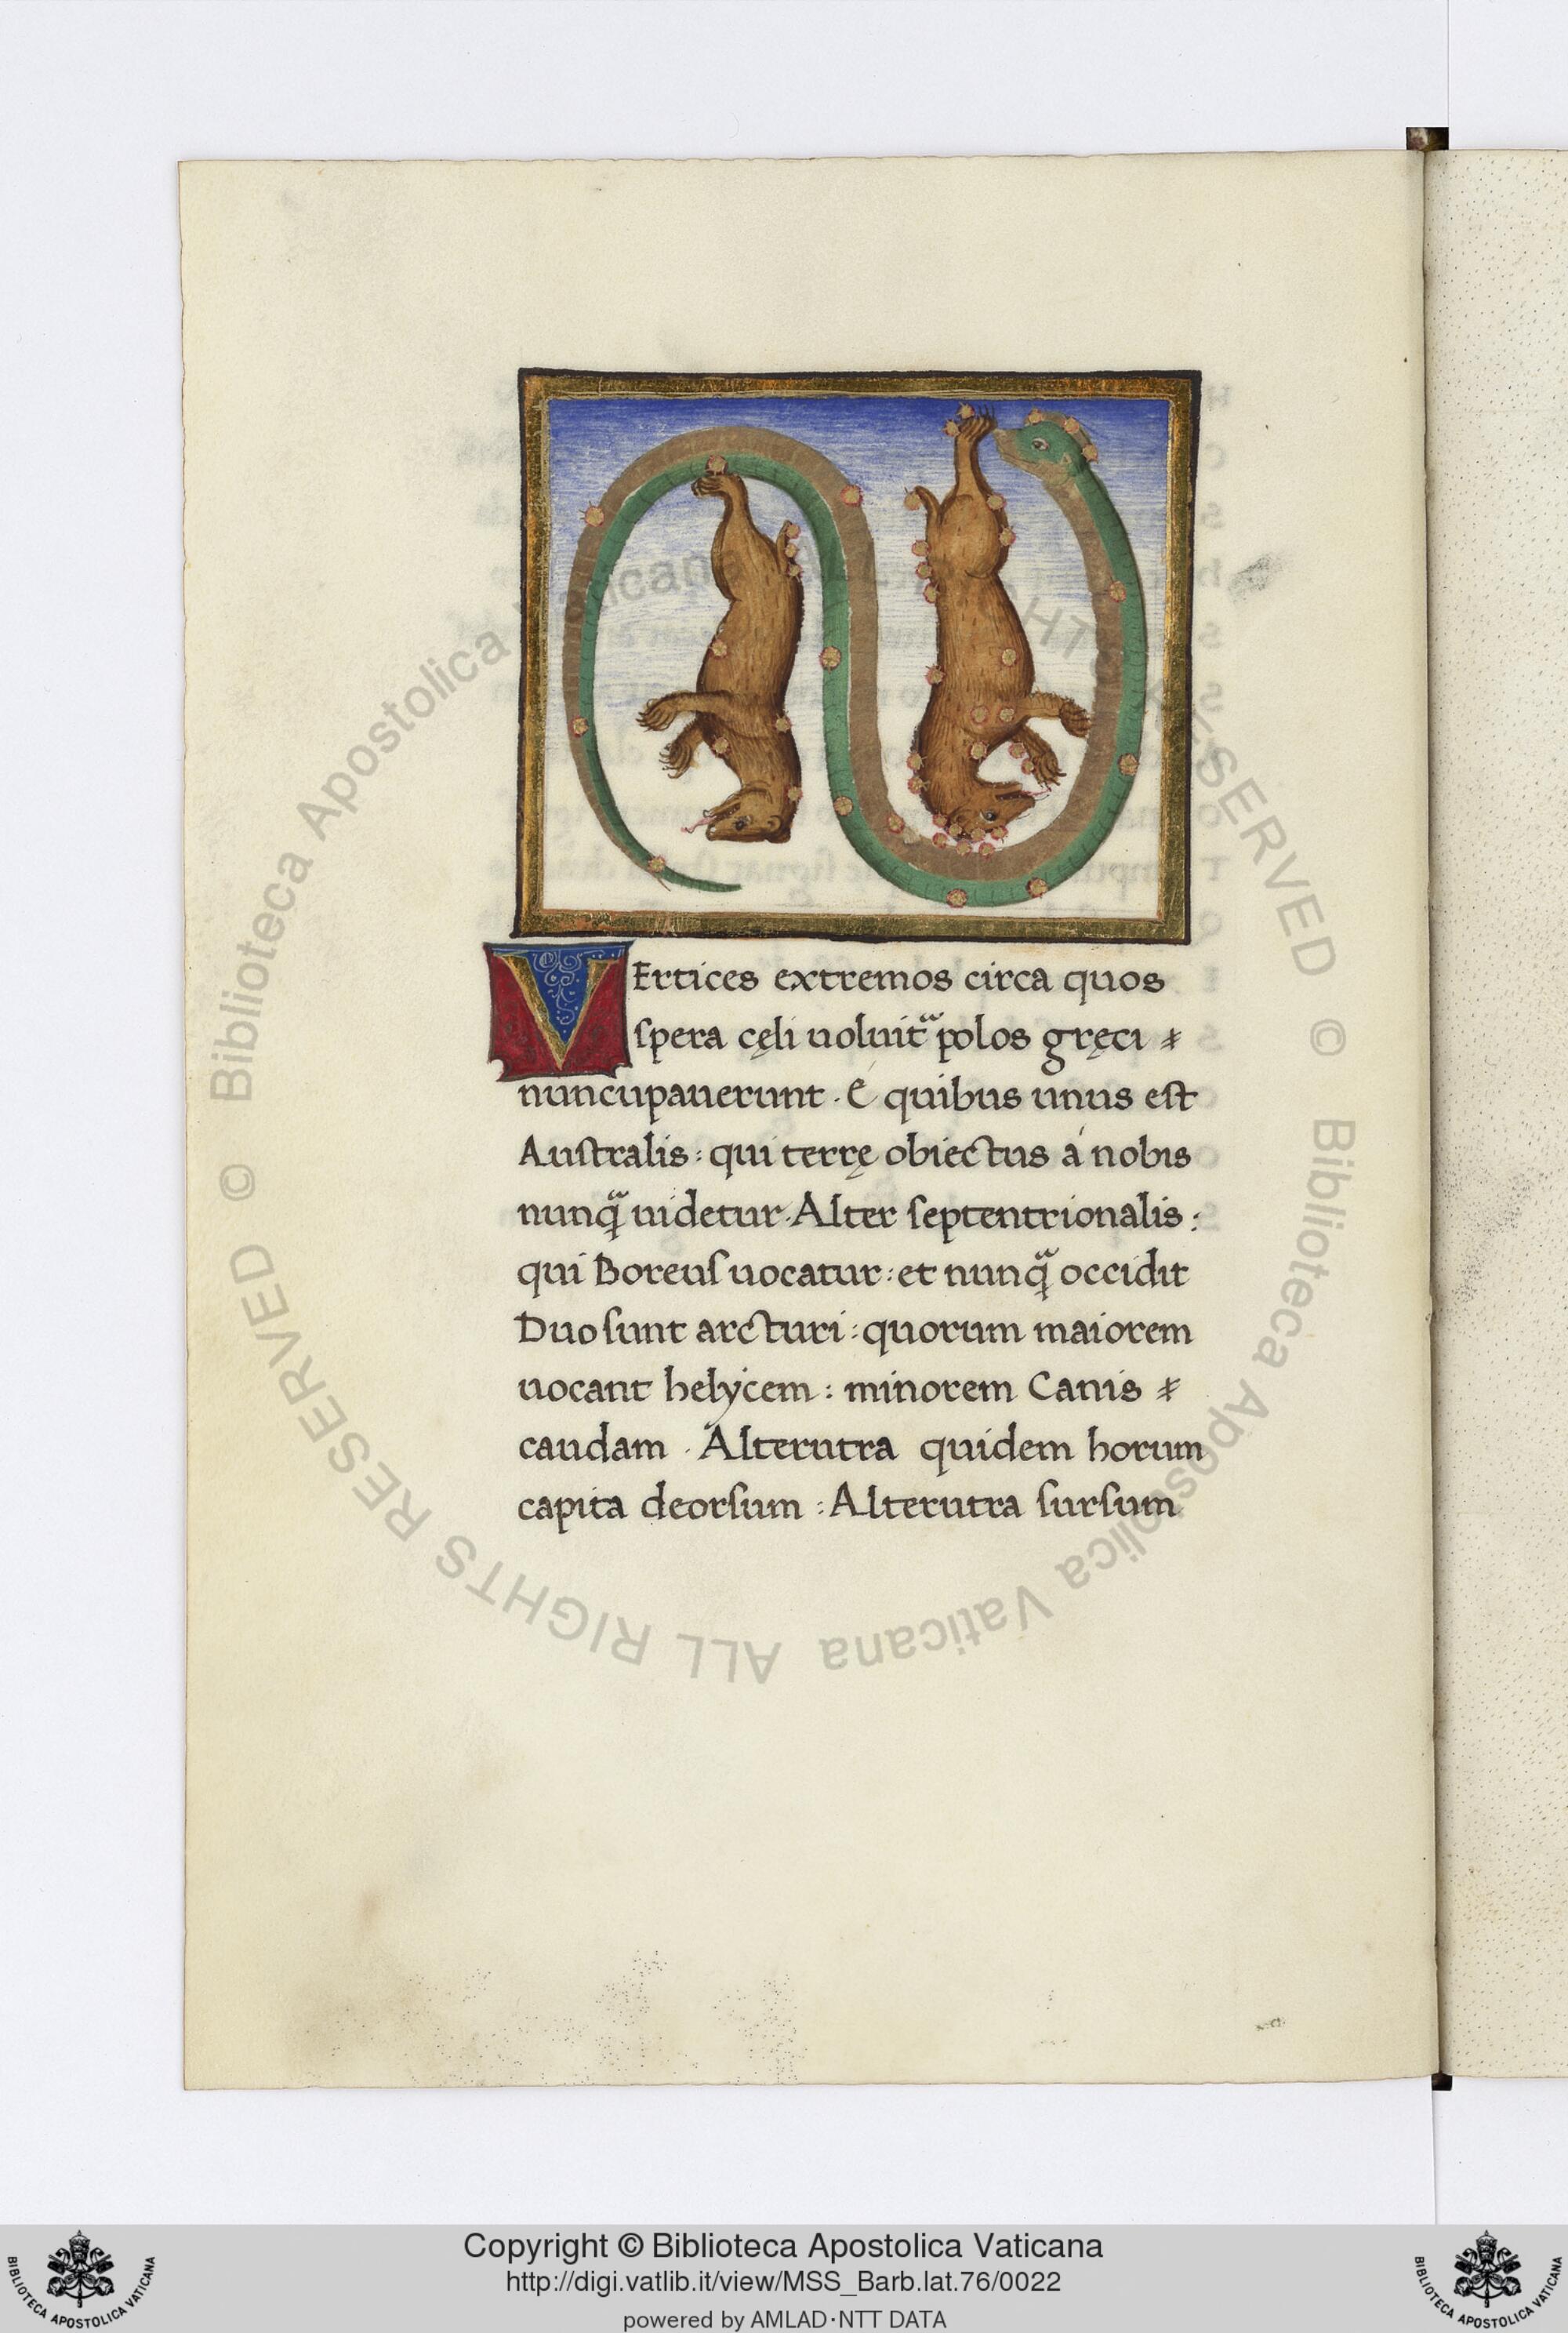 VErtices extremos circa quos
ſpera cęli uoluitᷓ polos gręci
nuncupauerunt . E quibus unus eſt
Auſtralis : qui terrę obiectus á nobis
nunq̃ uidetur . Alter ſeptentrionalis :
qui Boreuſ uocatur : et nunq̃ occidit
Duo ſunt arcturi : quorum maiorem
uocant helycem : minorem Canis
caudam . Alterutra quidem horum
capita deorſum : Alterutra ſurſum
© Biblioteca Apostolica Vaticana ALL RIGHTS RESERVED © Biblioteca Apostolica Vaticana ALL RIGHTS RESERVED
Copyright © Biblioteca Apostolica Vaticana
http://digi.vatlib.it/view/MSS_Barb.lat.76/0022
powered by AMLAD·NTT DATA
BIBLIOTECA APOSTOLICA VATICANA
BIBLIOTECA APOSTOLICA VATICANA